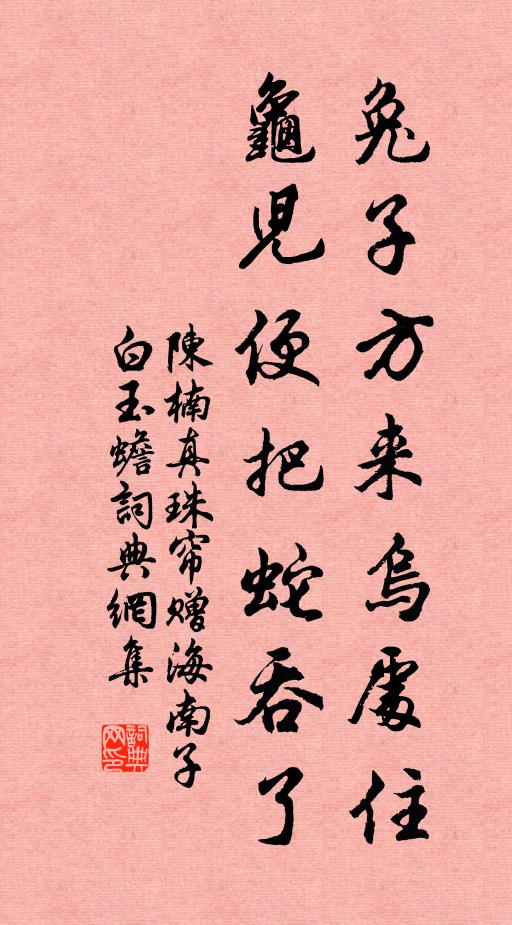 兔子方来烏處住
龜兒便把蛇吞了
陳楠真珠帘赠海南子
白玉蟾詞典網集
詞典
网印